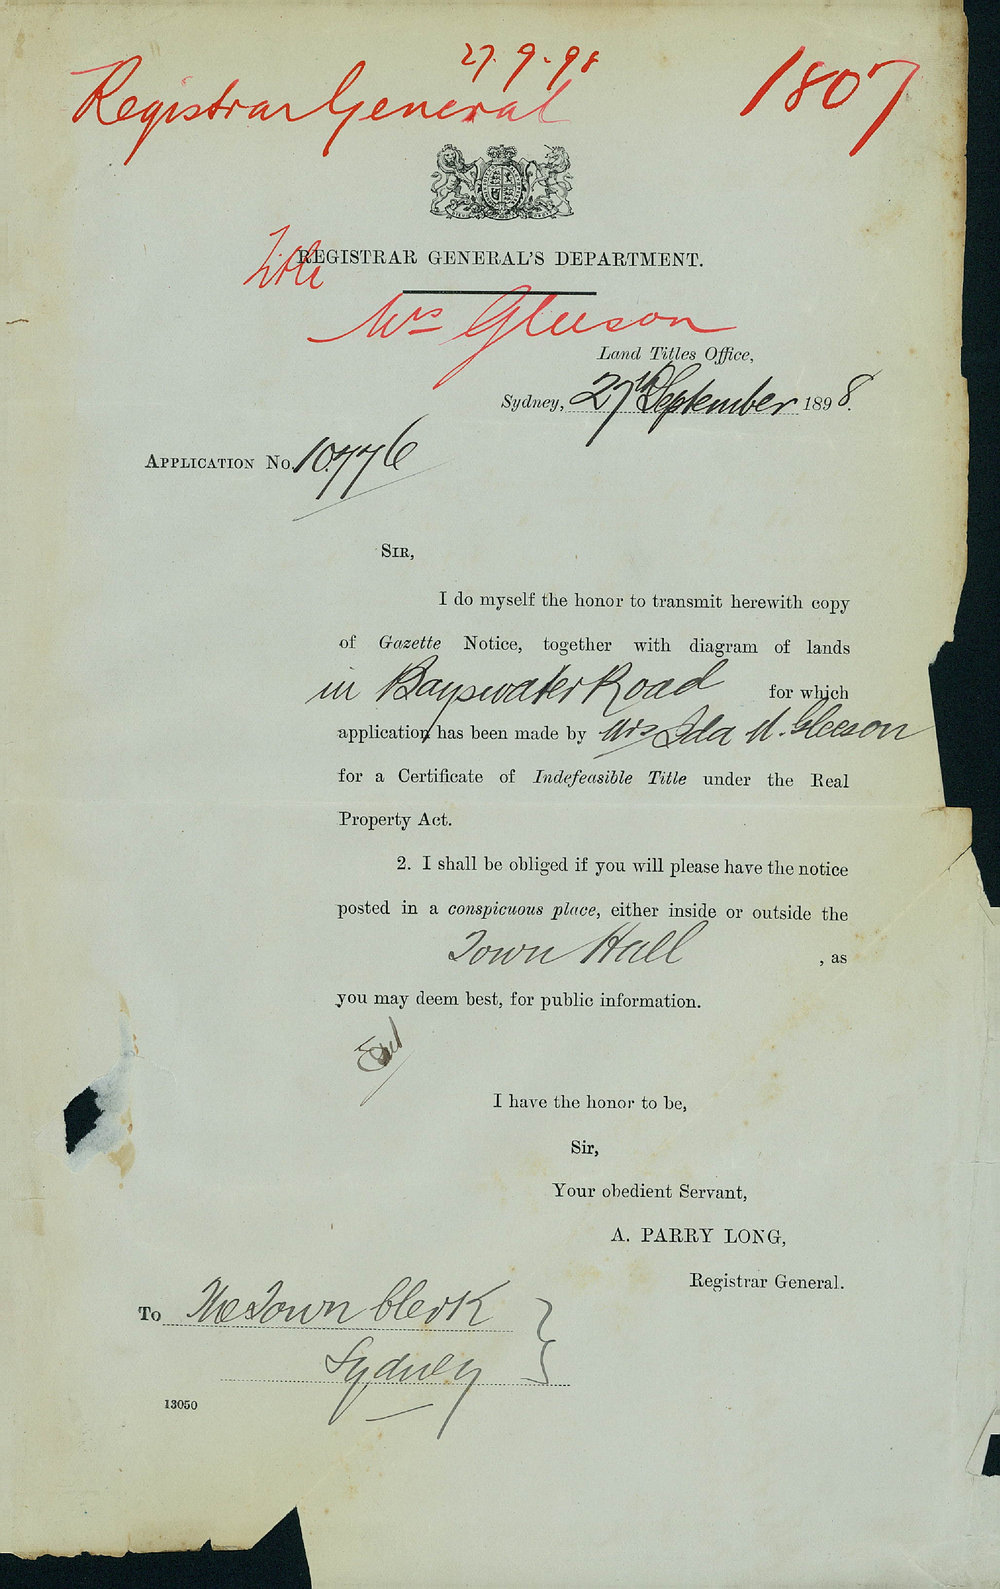 27.9.98
Registrar General
1807
REGISTRAR GENERAL'S DEPARTMENT.
Title
Mrs Gleeson
Land Titles Office,
Sydney, 27th September 1898.
APPLICATION No. 10.776
SIR,
I do myself the honor to transmit herewith copy
of Gazette Notice, together with diagram of lands
in Bayswater Road for which
application has been made by Mrs Ida M. Gleeson
for a Certificate of Indefeasible Title under the Real
Property Act.
2. I shall be obliged if you will please have the notice
posted in a conspicuous place, either inside or outside the
Town Hall , as
you may deem best, for public information.
I have the honor to be,
Sir,
Your obedient Servant,
A. PARRY LONG,
Registrar General.
To The Town Clerk
Sydney
13050